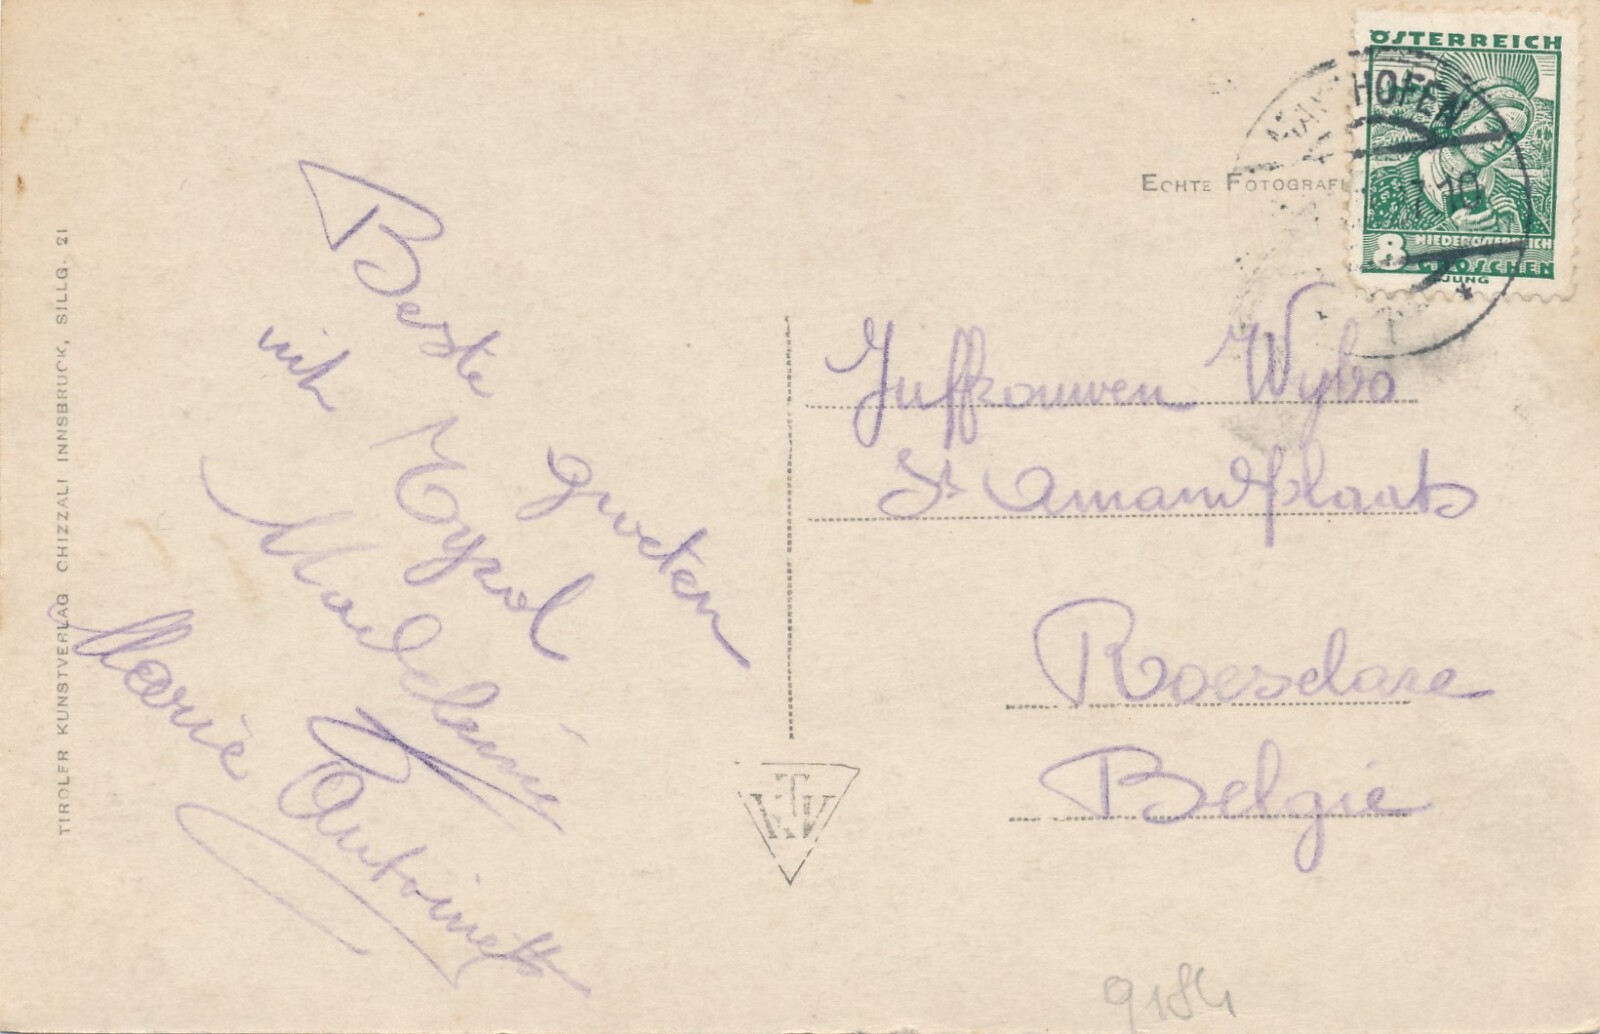 TIROLER KUNSTVERLAG CHIZZALI INNSBRUCK, SILLG. 21
Beste groeten
uit Tyrol
Madeleine
Marie Antoinette
TKV
ECHTE FOTOGRAFI
ÖSTERREICH
8 NIEDERÖSTERREICH
GROSCHEN
JUNG
HOFEN
Juffrouwen Wybo
St Amandsplaats
Roeselare
Belgie
9184